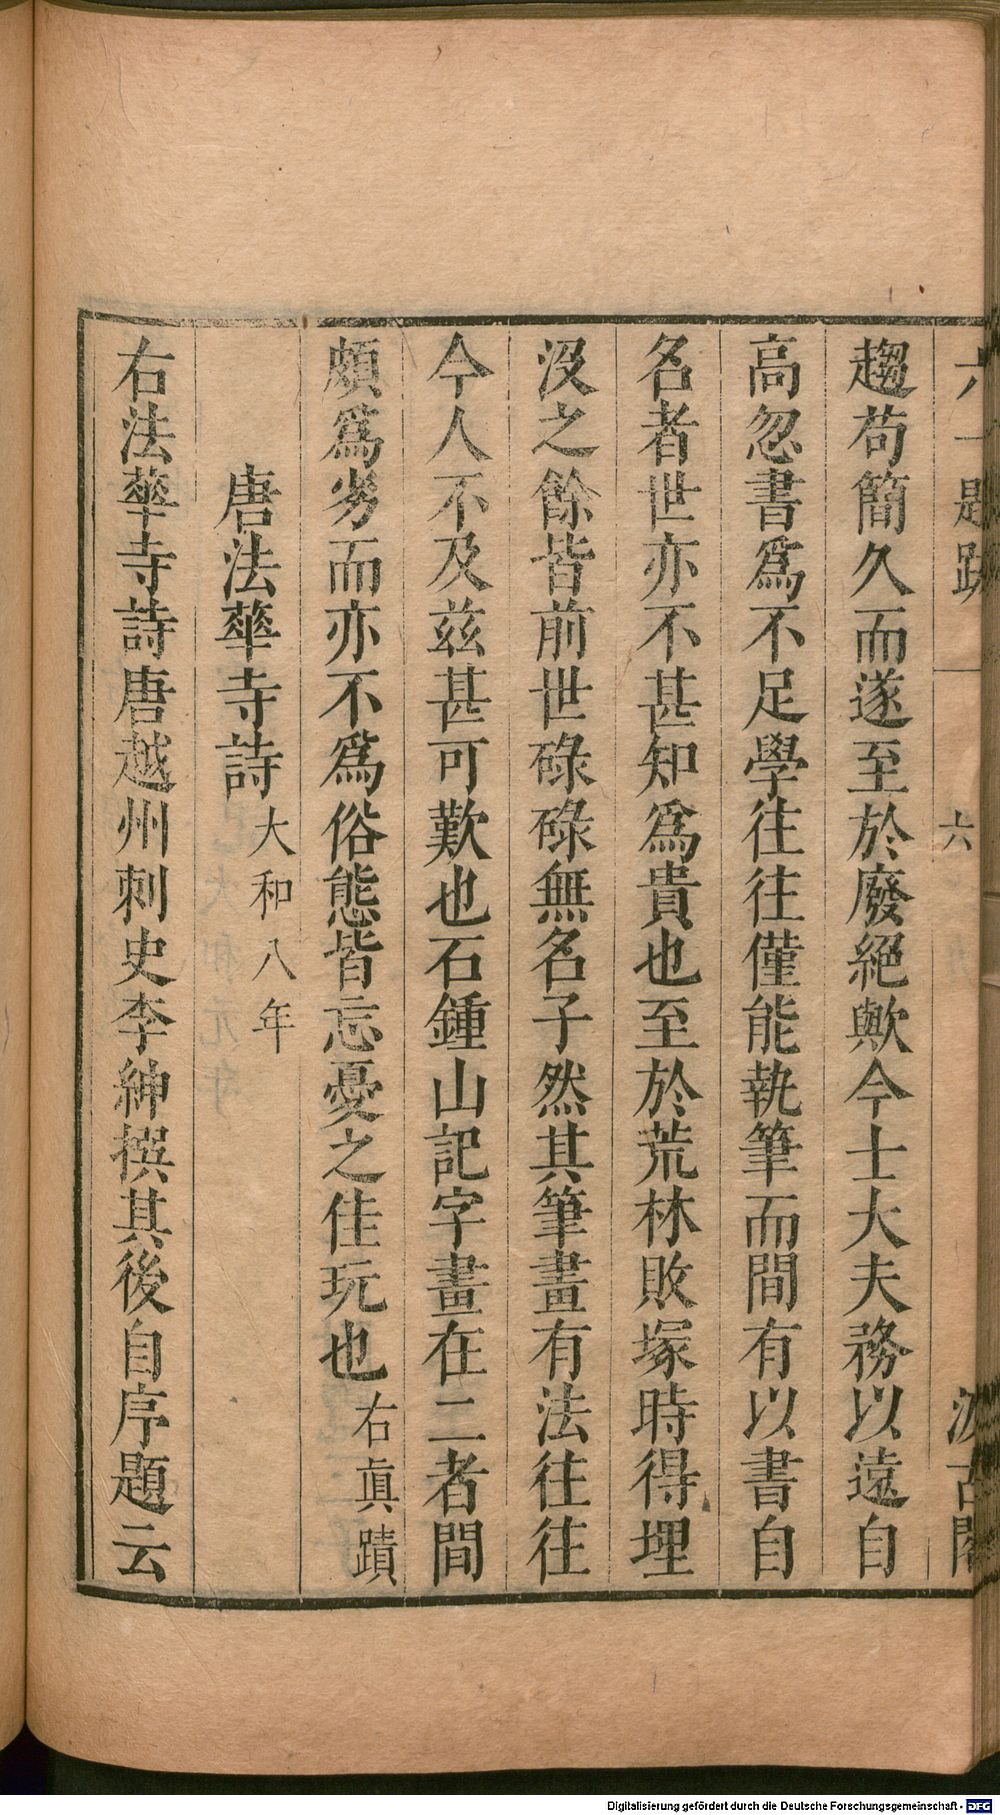 六一題跋
六
汲古閣
趨苟簡久而遂至於廢絕歟今士大夫務以遠自
高忽書爲不足學往往僅能執筆而間有以書自
名者世亦不甚知爲貴也至於荒林敗塚時得埋
沒之餘皆前世碌碌無名子然其筆畫有法往往
今人不及兹甚可歎也石鍾山記字畫在二者間
頗爲劣而亦不爲俗態皆忘憂之佳玩也右眞蹟
唐法華寺詩大和八年
右法華寺詩唐越州刺史李紳撰其後自序題云
Digitalisierung gefördert durch die Deutsche Forschungsgemeinschaft - DFG